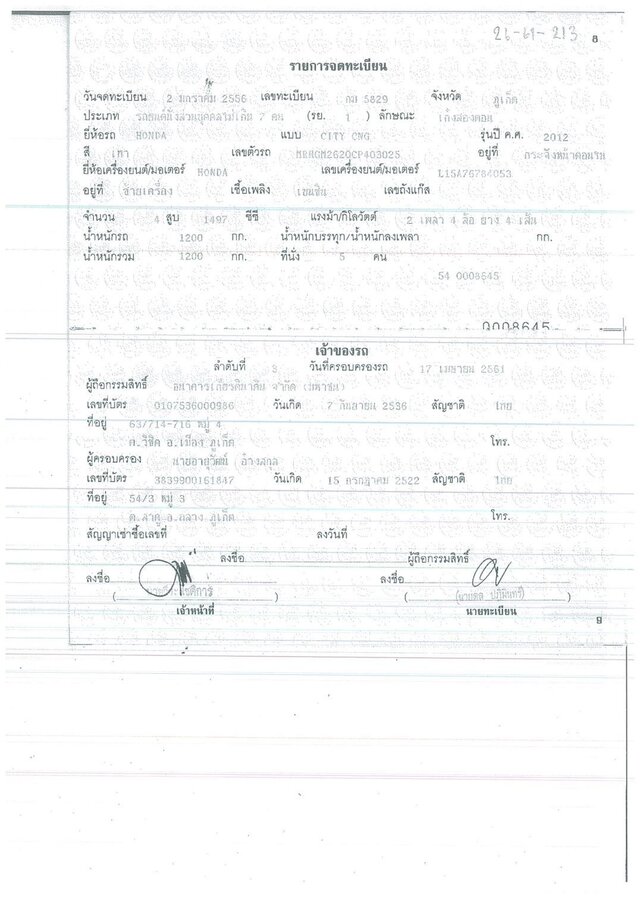 26-61-213 8
รายการจดทะเบียน
วันจดทะเบียน 2 มกราคม 2556 เลขทะเบียน กม 5829 จังหวัด ภูเก็ต
ประเภท รถยนต์นั่งส่วนบุคคลไม่เกิน 7 คน (รย. 1 ) ลักษณะ เก๋งสองตอน
ยี่ห้อรถ HONDA แบบ CITY CNG รุ่นปี ค.ศ. 2012
สี เทา เลขตัวรถ MRHGM2620CP403025 อยู่ที่ กระจังหน้าตอนบน
ยี่ห้อเครื่องยนต์/มอเตอร์ HONDA เลขเครื่องยนต์/มอเตอร์ L15A76784053
อยู่ที่ ซ้ายเครื่อง เชื้อเพลิง เบนซิน เลขถังแก๊ส
จำนวน 4 สูบ 1497 ซีซี แรงม้า/กิโลวัตต์ 2 เพลา 4 ล้อ ยาง 4 เส้น
น้ำหนักรถ 1200 กก. น้ำหนักบรรทุก/น้ำหนักลงเพลา กก.
น้ำหนักรวม 1200 กก. ที่นั่ง 5 คน
54 0008645
0008645
เจ้าของรถ
ลำดับที่ 3 วันที่ครอบครองรถ 17 เมษายน 2561
ผู้ถือกรรมสิทธิ์ ธนาคารเกียรตินาคิน จำกัด (มหาชน)
เลขที่บัตร 0107536000986 วันเกิด 7 กันยายน 2536 สัญชาติ ไทย
ที่อยู่ 63/714-716 หมู่ 4
ต.วิชิต อ.เมือง ภูเก็ต โทร.
ผู้ครอบครอง
เลขที่บัตร 3839900161847 วันเกิด 15 กรกฎาคม 2522 สัญชาติ ไทย
ที่อยู่ 54/3 หมู่ 3
ต.สาคู อ.ถลาง ภูเก็ต โทร.
สัญญาเช่าซื้อเลขที่ ลงวันที่
ลงชื่อ ผู้ถือกรรมสิทธิ์
ลงชื่อ ลงชื่อ
เจ้าหน้าที่ นายทะเบียน
9